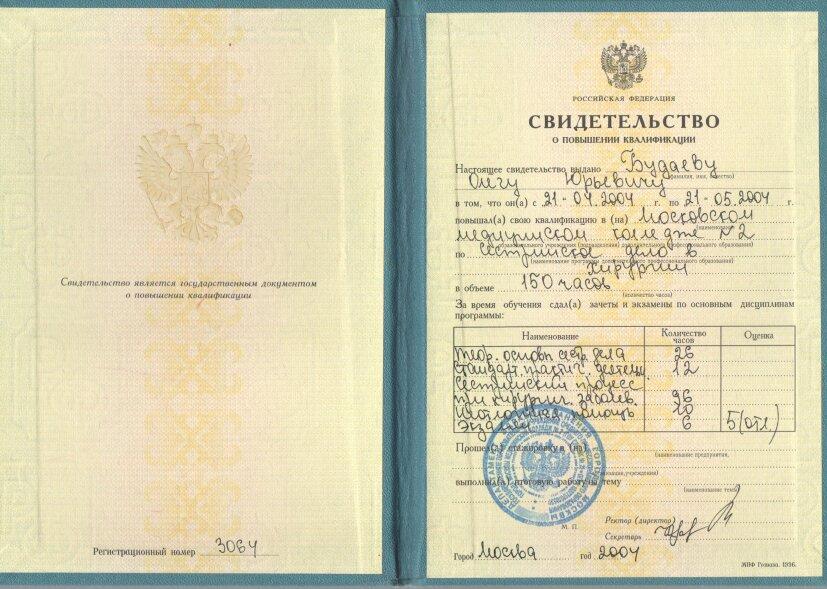 Свидетельство является государственным документом
о повышении квалификации
Регистрационный номер 3064
РОССИЙСКАЯ ФЕДЕРАЦИЯ
СВИДЕТЕЛЬСТВО
О ПОВЫШЕНИИ КВАЛИФИКАЦИИ
Настоящее свидетельство выдано Будаеву
(фамилия, имя, отчество)
Олегу Юрьевичу
в том, что он(а) с 21-04.2004 г. по 21-05.2004 г.
повышал(а) свою квалификацию в (на) Московском
(наименование
медицинском колледже №2
образовательного учреждения (подразделения) дополнительного профессионального образования)
по Сестринское дело в
(наименование программы дополнительного профессионального образования)
хирургии
в объеме 150 часов
(количество часов)
За время обучения сдал(а) зачеты и экзамены по основным дисциплинам
программы:
Наименование Количество часов Оценка
Теор. основы сестр. дела 26
Стандарт. практич. деятельн. 12
Сестринский процесс
при хирургич. заболев. 96
Неотложная помощь 10
Экзамен 6 5(отл.)
Прошел(а) стажировку в (на)
(наименование предприятия,
организации, учреждения)
выполнил(а) итоговую работу на тему
(наименование темы)
Ректор (директор)
М. П.
Секретарь
Город Москва год 2004
МПФ Гознака. 1996.